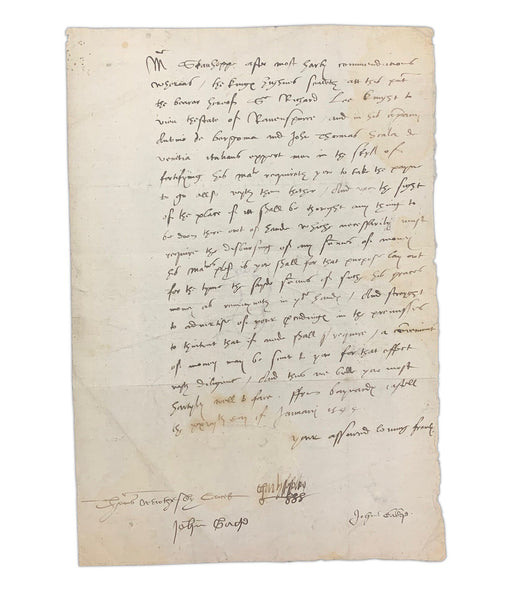 Mr Stanhoppe after most harty commendations
wheras the kings highnes sendeth at this pnt
the bearer herof Sr Richard Lee knight to
view thestate of Ravenspurre and in his company
Antonio de bargoma and John Thomas Scala de
venetia italians expert men in the skyll of
fortifying his mate requireth you to take the payne
to go also with them thither / And upon the sight
of the place if it shall be thought any thing to
be doon there out of hande which necessarily must
require the disbursing of any summes of money
his mates pleasr is you shall for that purpose lay out
for the tyme the said summes of such his graces
money as remayneth in yor handes / And streight
to advertise of your proceedings in the premisses
to thintent that if nede shall require / a
of money may be sent to you for that effect
with diligence / And thus we bidde you most
hartely well to fare / ffrom baynards castell
the day of January 1544
your assured loving frends
John Gage